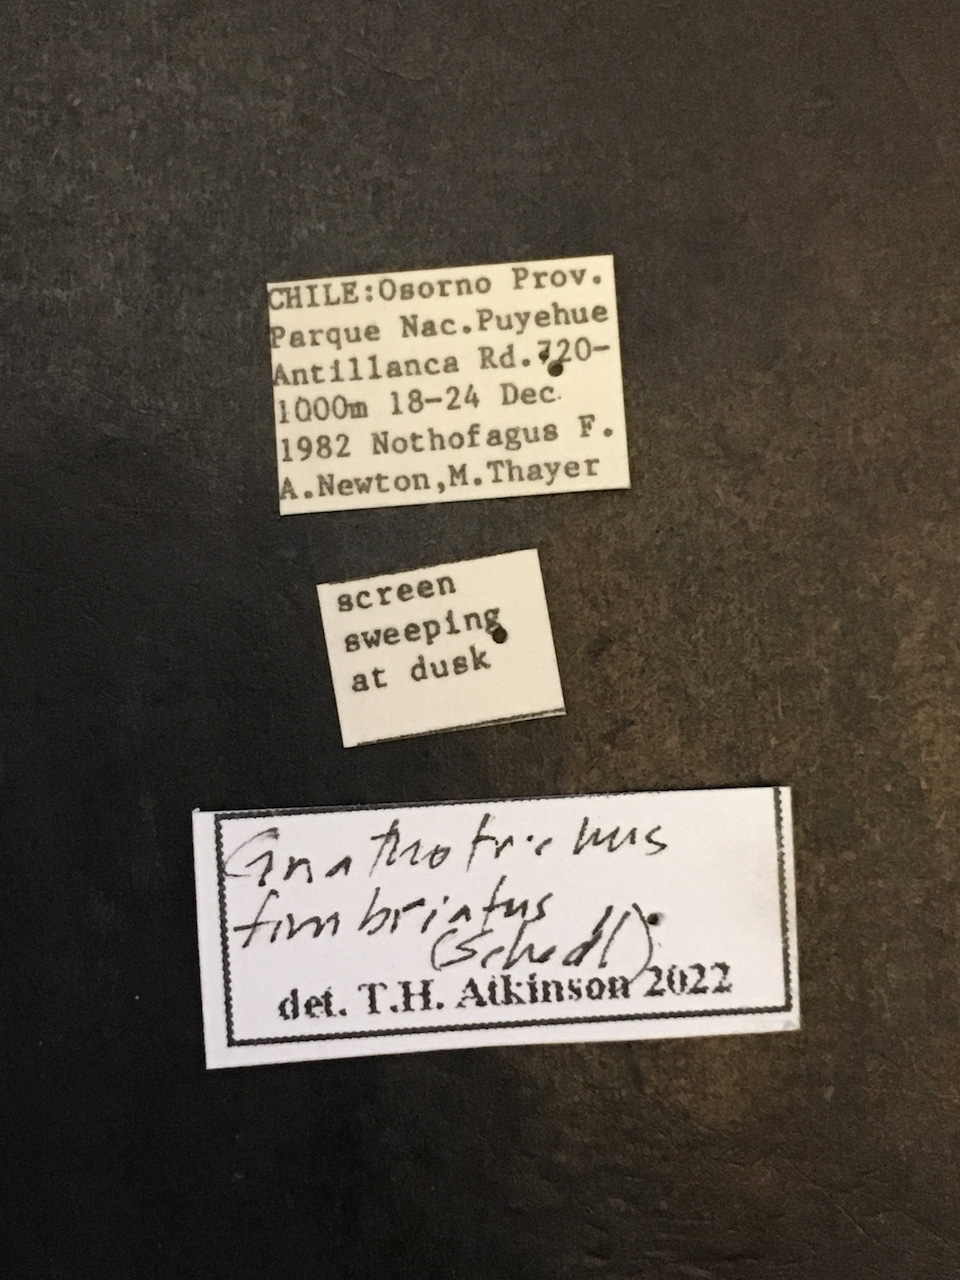 CHILE:Osorno Prov.
Parque Nac.Puyehue
Antillanca Rd.720-
1000m 18-24 Dec.
1982 Nothofagus F.
A.Newton,M.Thayer
screen
sweeping
at dusk
Gnathotrichus
fimbriatus
(Schedl)
det. T.H. Atkinson 2022